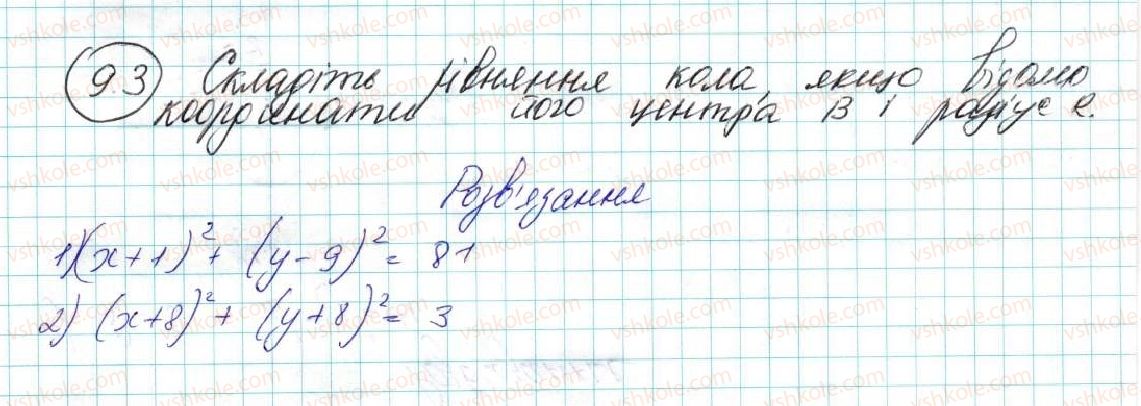 9.3 Складіть рівняння кола, якщо відомо
координати його центра В і радіус R.
Розв'язання
1) (x+1)² + (y-9)² = 81
2) (x+8)² + (y+8)² = 3